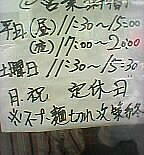 営業時間
平日(昼)11:30~15:00
(夜)17:00~20:00
土曜日 11:30~15:30
日.祝 定休日
※スープ、麺切れ次第終